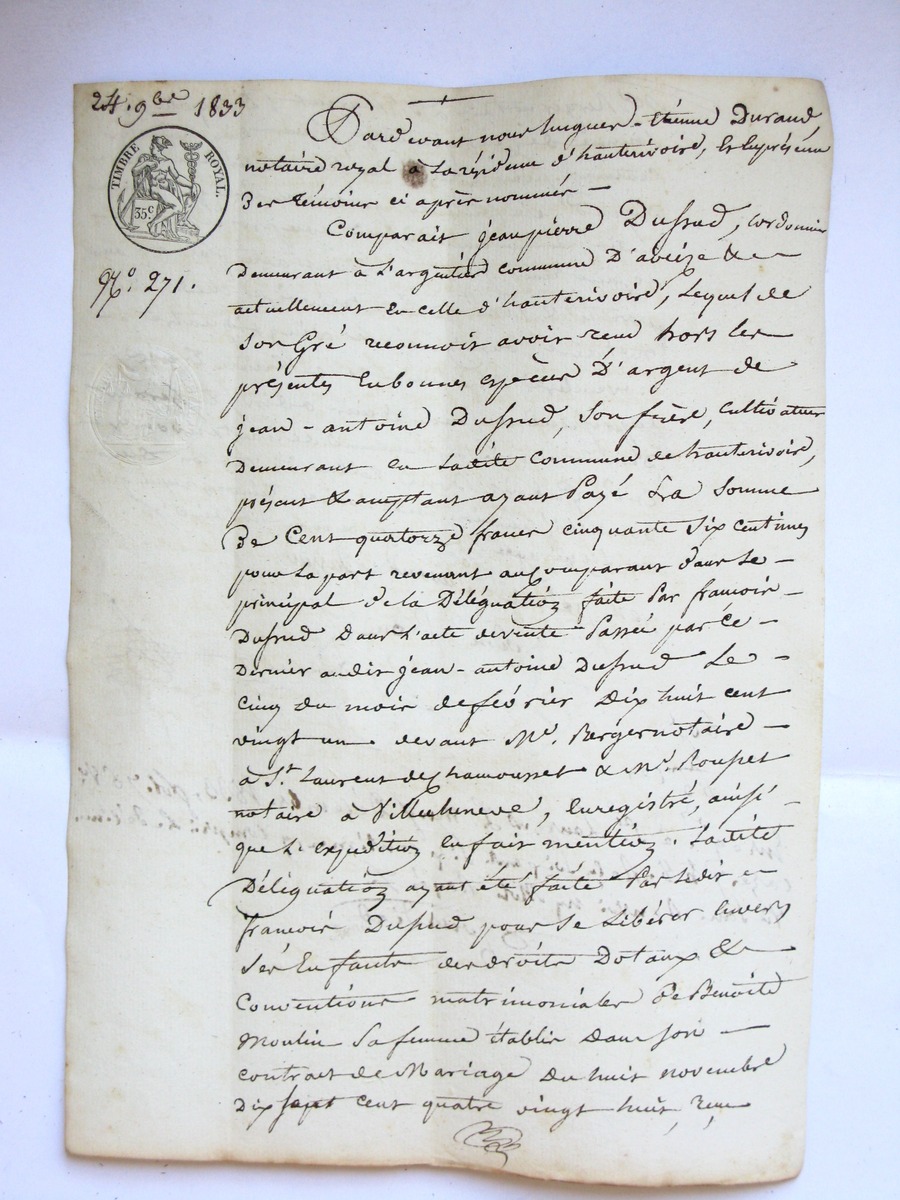 24. 9bre 1833
TIMBRE ROYAL.
35c
No. 271.
Pardevant nous hugues-étienne Durand,
notaire royal à la résidence d'hauterivoire, et En présence
Des témoins ci après nommés —
Comparait jean pierre Dussud, cordonnier
Demeurant à L'argentière commune D'aveize &
actuellement En celle d'hauterivoire, Lequel de
Son Gré reconnoit avoir reçu hors les
présentes En bonnes espèces D'argent de
jean-antoine Dussud, Son frère, cultivateur
Demeurant En Ladite Commune de hauterivoire,
présent & acceptant ayant Payé La Somme
De Cent quatorze francs cinquante Six centimes
pour La part revenant au Comparant Dans Le —
principal De la Déléguation faite Par françois —
Dussud Dans L'acte de vente Passée par Ce —
Dernier audit jean-antoine Dussud Le —
Cinq Du mois de février Dix huit cent
vingt un devant Me. Berger notaire —
à St. Laurent de Chamousset & Me. Rousset
notaire à Villecheneve, Enregistré, ainsi —
que L'expédition En fait mention. Ladite
Déléguation ayant été faite Par Ledit —
françois Dussud pour Se Libérer Envers
Ses Enfants des droits Dotaux &
Conventions matrimoniales De Benoite
Moulin Sa femme établis Dans son —
contrat de Mariage Du huit novembre
Dix sept cent quatre vingt huit, reçu